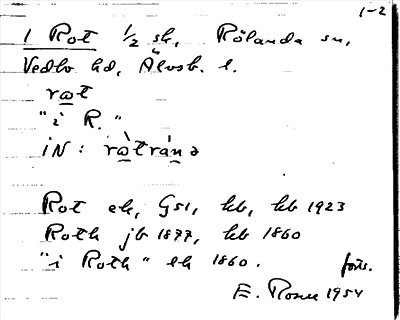 1-2
1 Rot 1/2 sk, Rölanda sn,
Vedbo hd, Älvsb. l.
rωt
"i R."
iN: rὼtránə
Rot ek, GS1, hb, kb 1923
Roth jb 1877, kb 1860
"i Roth" lk 1860. forts.
E. Rosell 1954